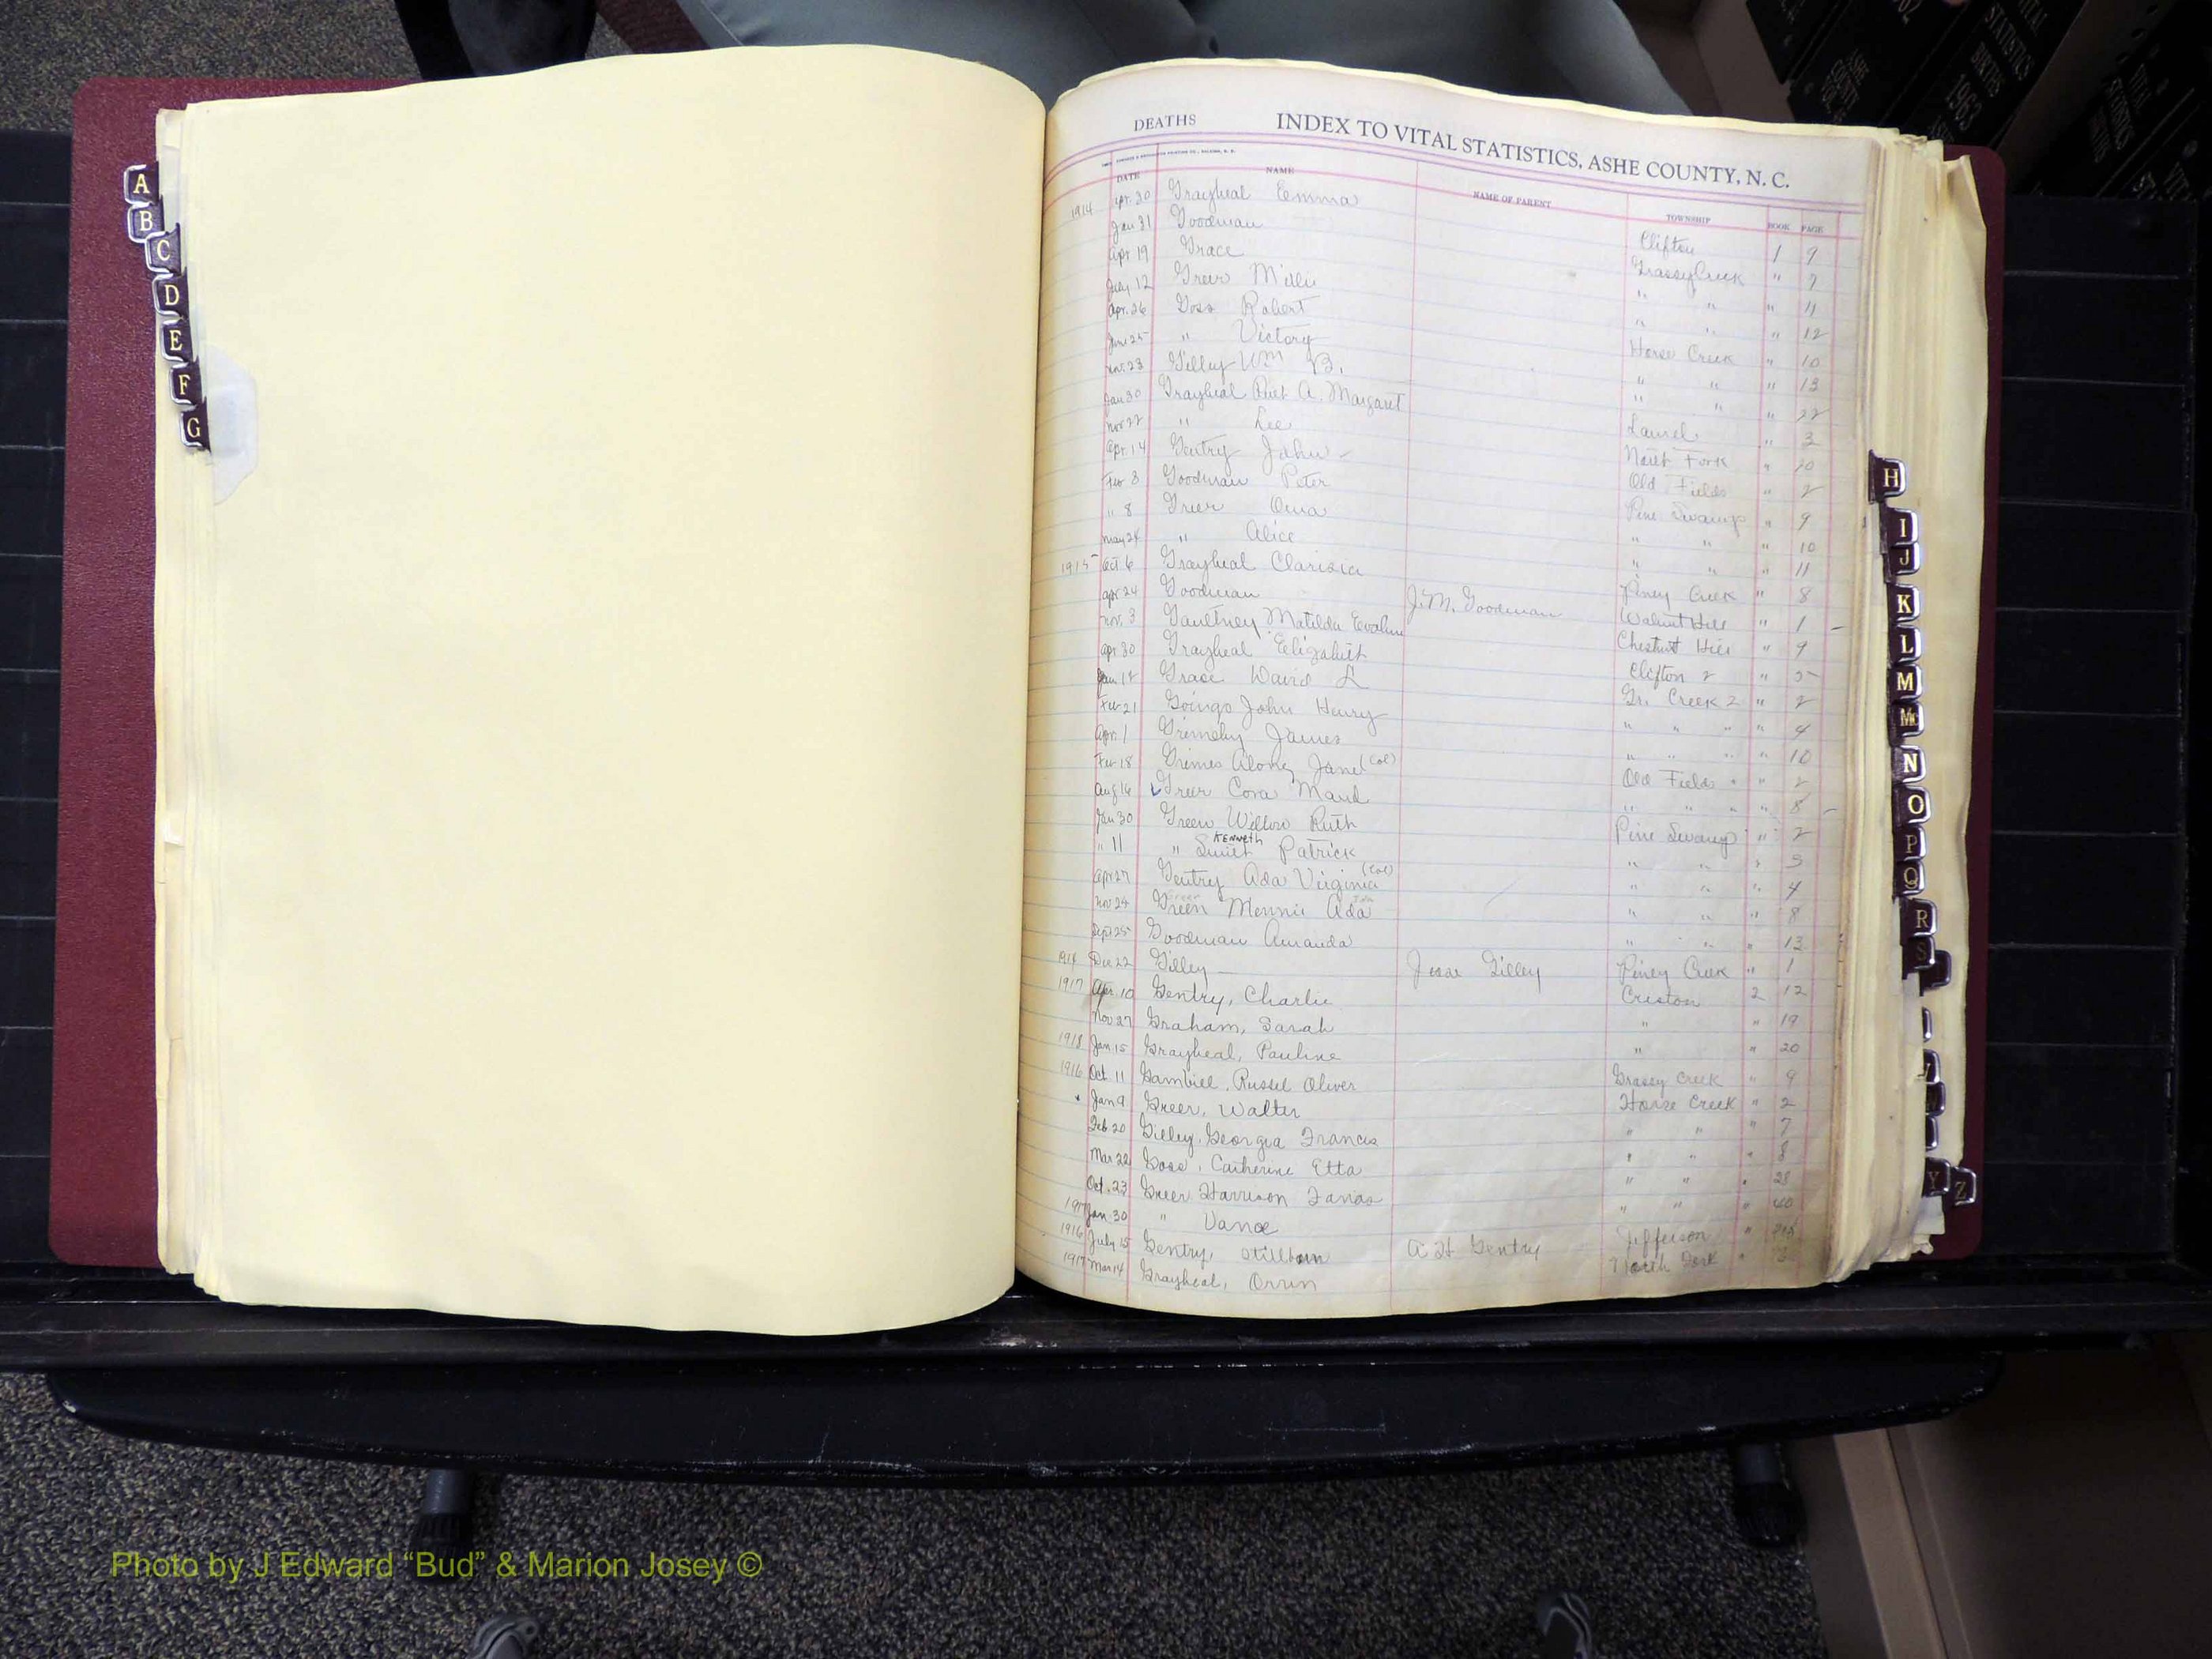 A
B
C
D
E
F
G
DEATHS INDEX TO VITAL STATISTICS, ASHE COUNTY, N. C.
DATE NAME NAME OF PARENT TOWNSHIP BOOK PAGE
1914 Apr. 30 Graybeal Emma Clifton 1 9
Jan 31 Goodman Grassy Creek " 7
Apr 19 Grace " " " 11
July 12 Greer " " " 12
Apr. 26 Goss Robert Horse Creek " 10
" Victory " " " 13
Nov. 23 Gilley Wm B. " " " 22
Jan 30 Graybeal A. Margaret Laurel " 3
Nov 22 " Lee North Fork "
Apr. 14 Gentry John Old Fields " 2
Feb 3 Goodman Peter Pine Swamp " 9
" 8 Greer " " " 10
May 24 " Alice " " " 11
1915 Oct 6 Graybeal Clarisia Piney Creek " 8
Apr 24 Goodman J. M. Goodman Walnut Hill " 1
Nov. 3 Gaultney Matilda Evaline Chestnut Hill " 9
Apr 30 Graybeal Elizabeth Clifton 2 " 5
Grace David L Gr. Creek 2 " 2
Feb 21 Goings John Henry " " " " 4
Apr. 1 James " " " " 10
Feb 18 Grimes Jane (Col) Old Fields " " 2
Aug 16 Greer Cora Maud " " " " 8
Jan 30 Green Ruth Pine Swamp " " 2
" 11 " Smith Kenneth Patrick " " " 3
Apr 27 Gentry Ada Virginia (Col) " " " 4
Nov 24 Green Ada " " " 8
Sept 25 Goodman Amanda " " " 13
Dec 22 Gilley Jesse Gilley Piney Creek " 1
1917 Apr. 10 Gentry, Charlie Creston 2 12
Nov 27 Graham, Sarah " " 19
1918 Jan. 15 Graybeal, Pauline " " 20
1916 Oct. 11 Gambill, Russel Oliver Grassy Creek " 9
Jan 9 Greer, Walter Horse Creek " 2
Feb. 20 Gilley, Georgia Francis " " " 7
Mar 22 Goss, Catherine Etta " " " 8
Oct. 23 Greer Harrison " " " 28
1917 Jan. 30 " Vance " " " 40
1916 July 15 Gentry, Stillborn A H Gentry Jefferson "
1917 Mar 14 Graybeal, Orrin North Fork " 3
H
I
J
K
L
M
Mc
N
O
P
Q
R
S
Y
Z
VITAL
STATISTICS
BIRTHS
1963
Photo by J Edward “Bud” & Marion Josey ©